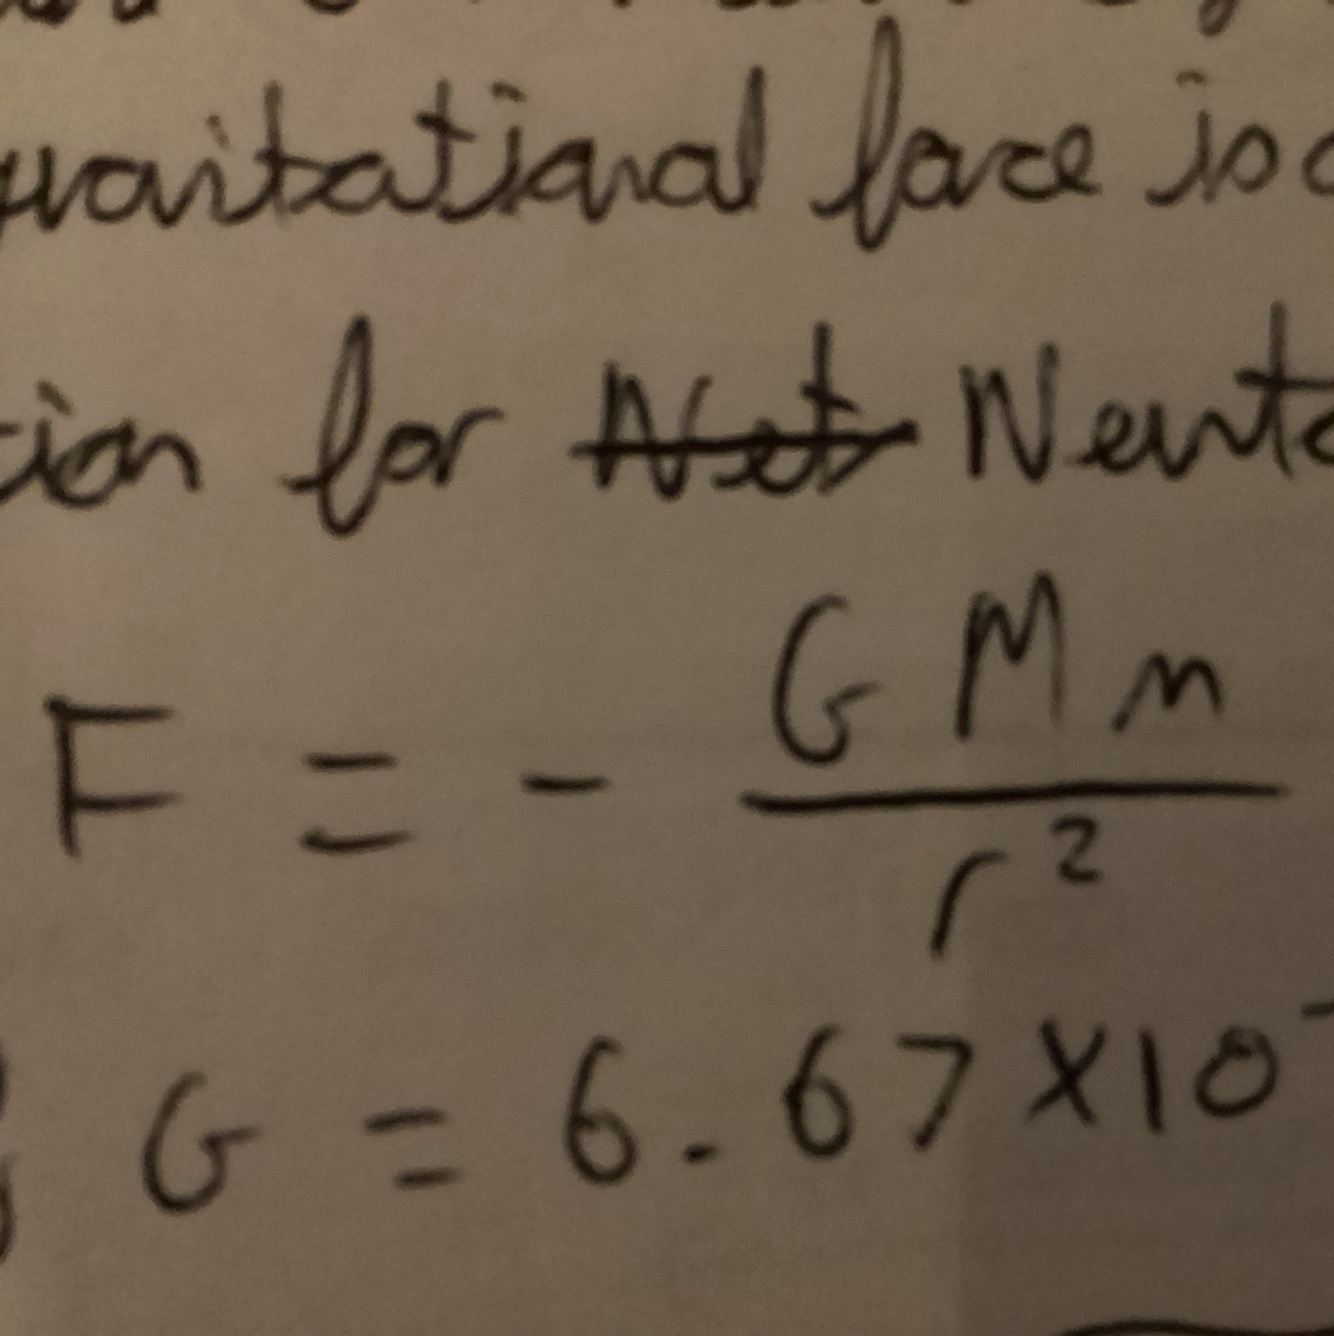 gravitational force is
tion for Net Newto
F = - G M m / r²
G = 6.67 × 10⁻